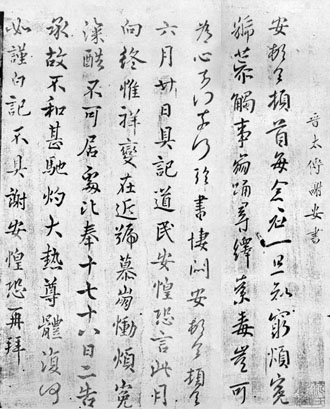 晉太傅謝安書
安頓首頓首每念君一旦知窮煩冤
號慕觸事崩踊尋繹荼毒豈可
為心奈何奈何臨書悽悶安頓首頓首
六月廿日具記道民安惶恐言此月
向終惟祥變在近號慕崩慟煩冤
深酷不可居處比奉十七十八日二告
承故不和甚馳灼大熱尊體復何
如謹白記不具謝安惶恐再拜